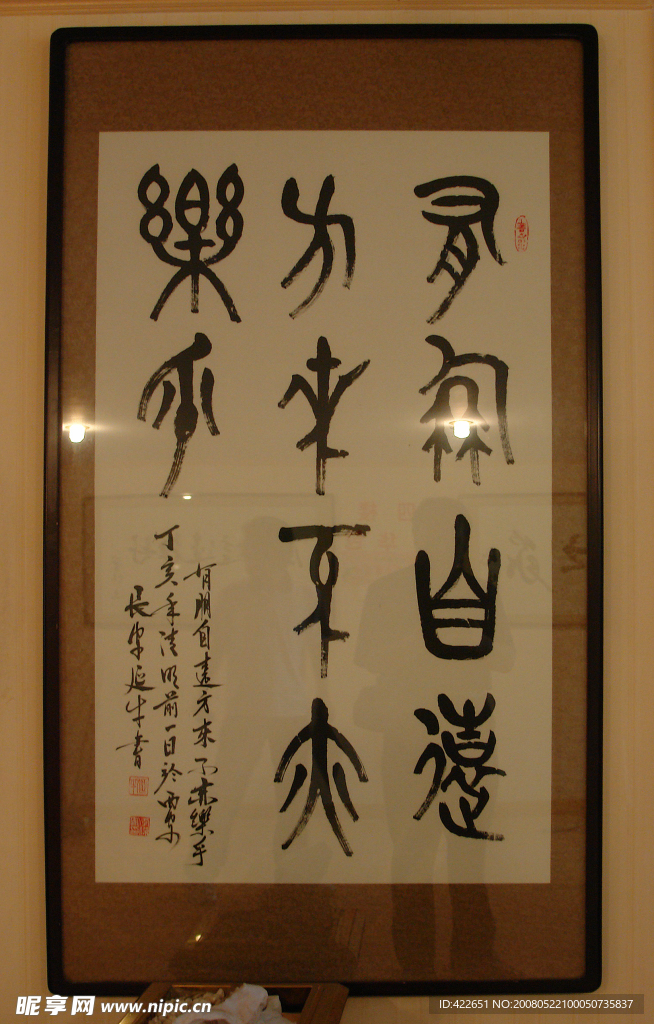 有朋自遠
方來不亦
樂乎
有朋自遠方來不亦樂乎
丁亥年清明前一日於西京
長安延生書
昵享网 www.nipic.cn
ID:422651 NO:20080522100050735837